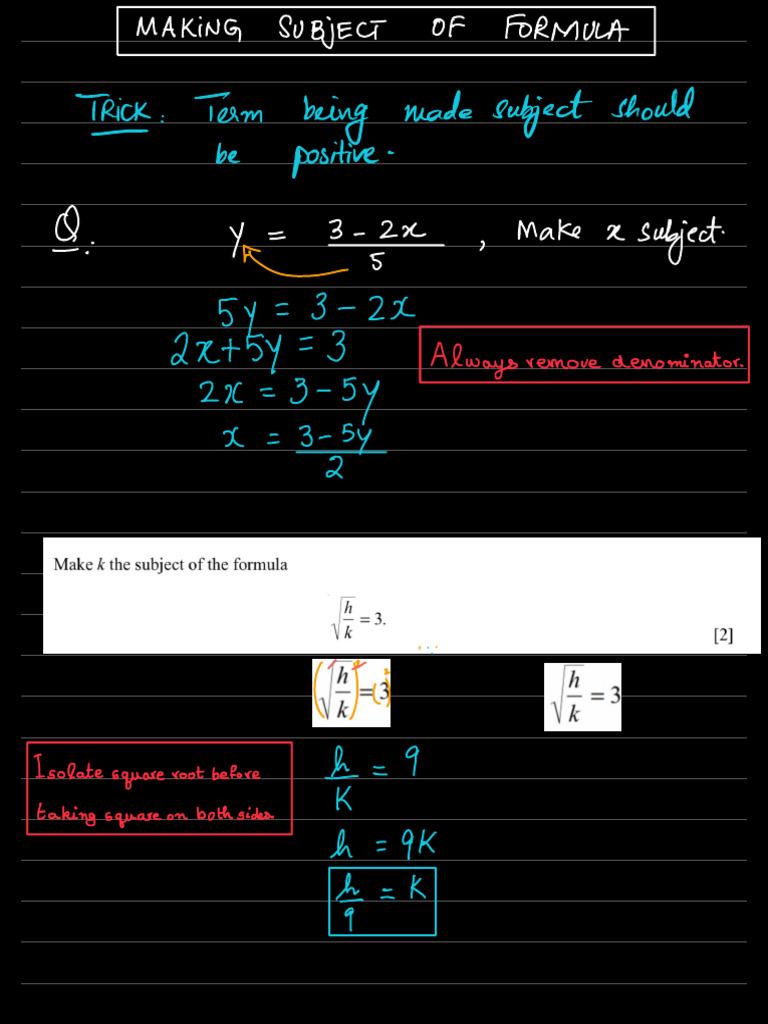 MAKING SUBJECT OF FORMULA
TRICK: Term being made subject should
be positive.
Q. y = 3 - 2x / 5 , Make x subject.
5y = 3 - 2x
2x + 5y = 3
Always remove denominator.
2x = 3 - 5y
x = 3 - 5y / 2
Make k the subject of the formula
√(h/k) = 3.
[2]
(√(h/k))² = (3)²
√(h/k) = 3
Isolate square root before
taking square on both sides.
h/K = 9
h = 9K
h/9 = K